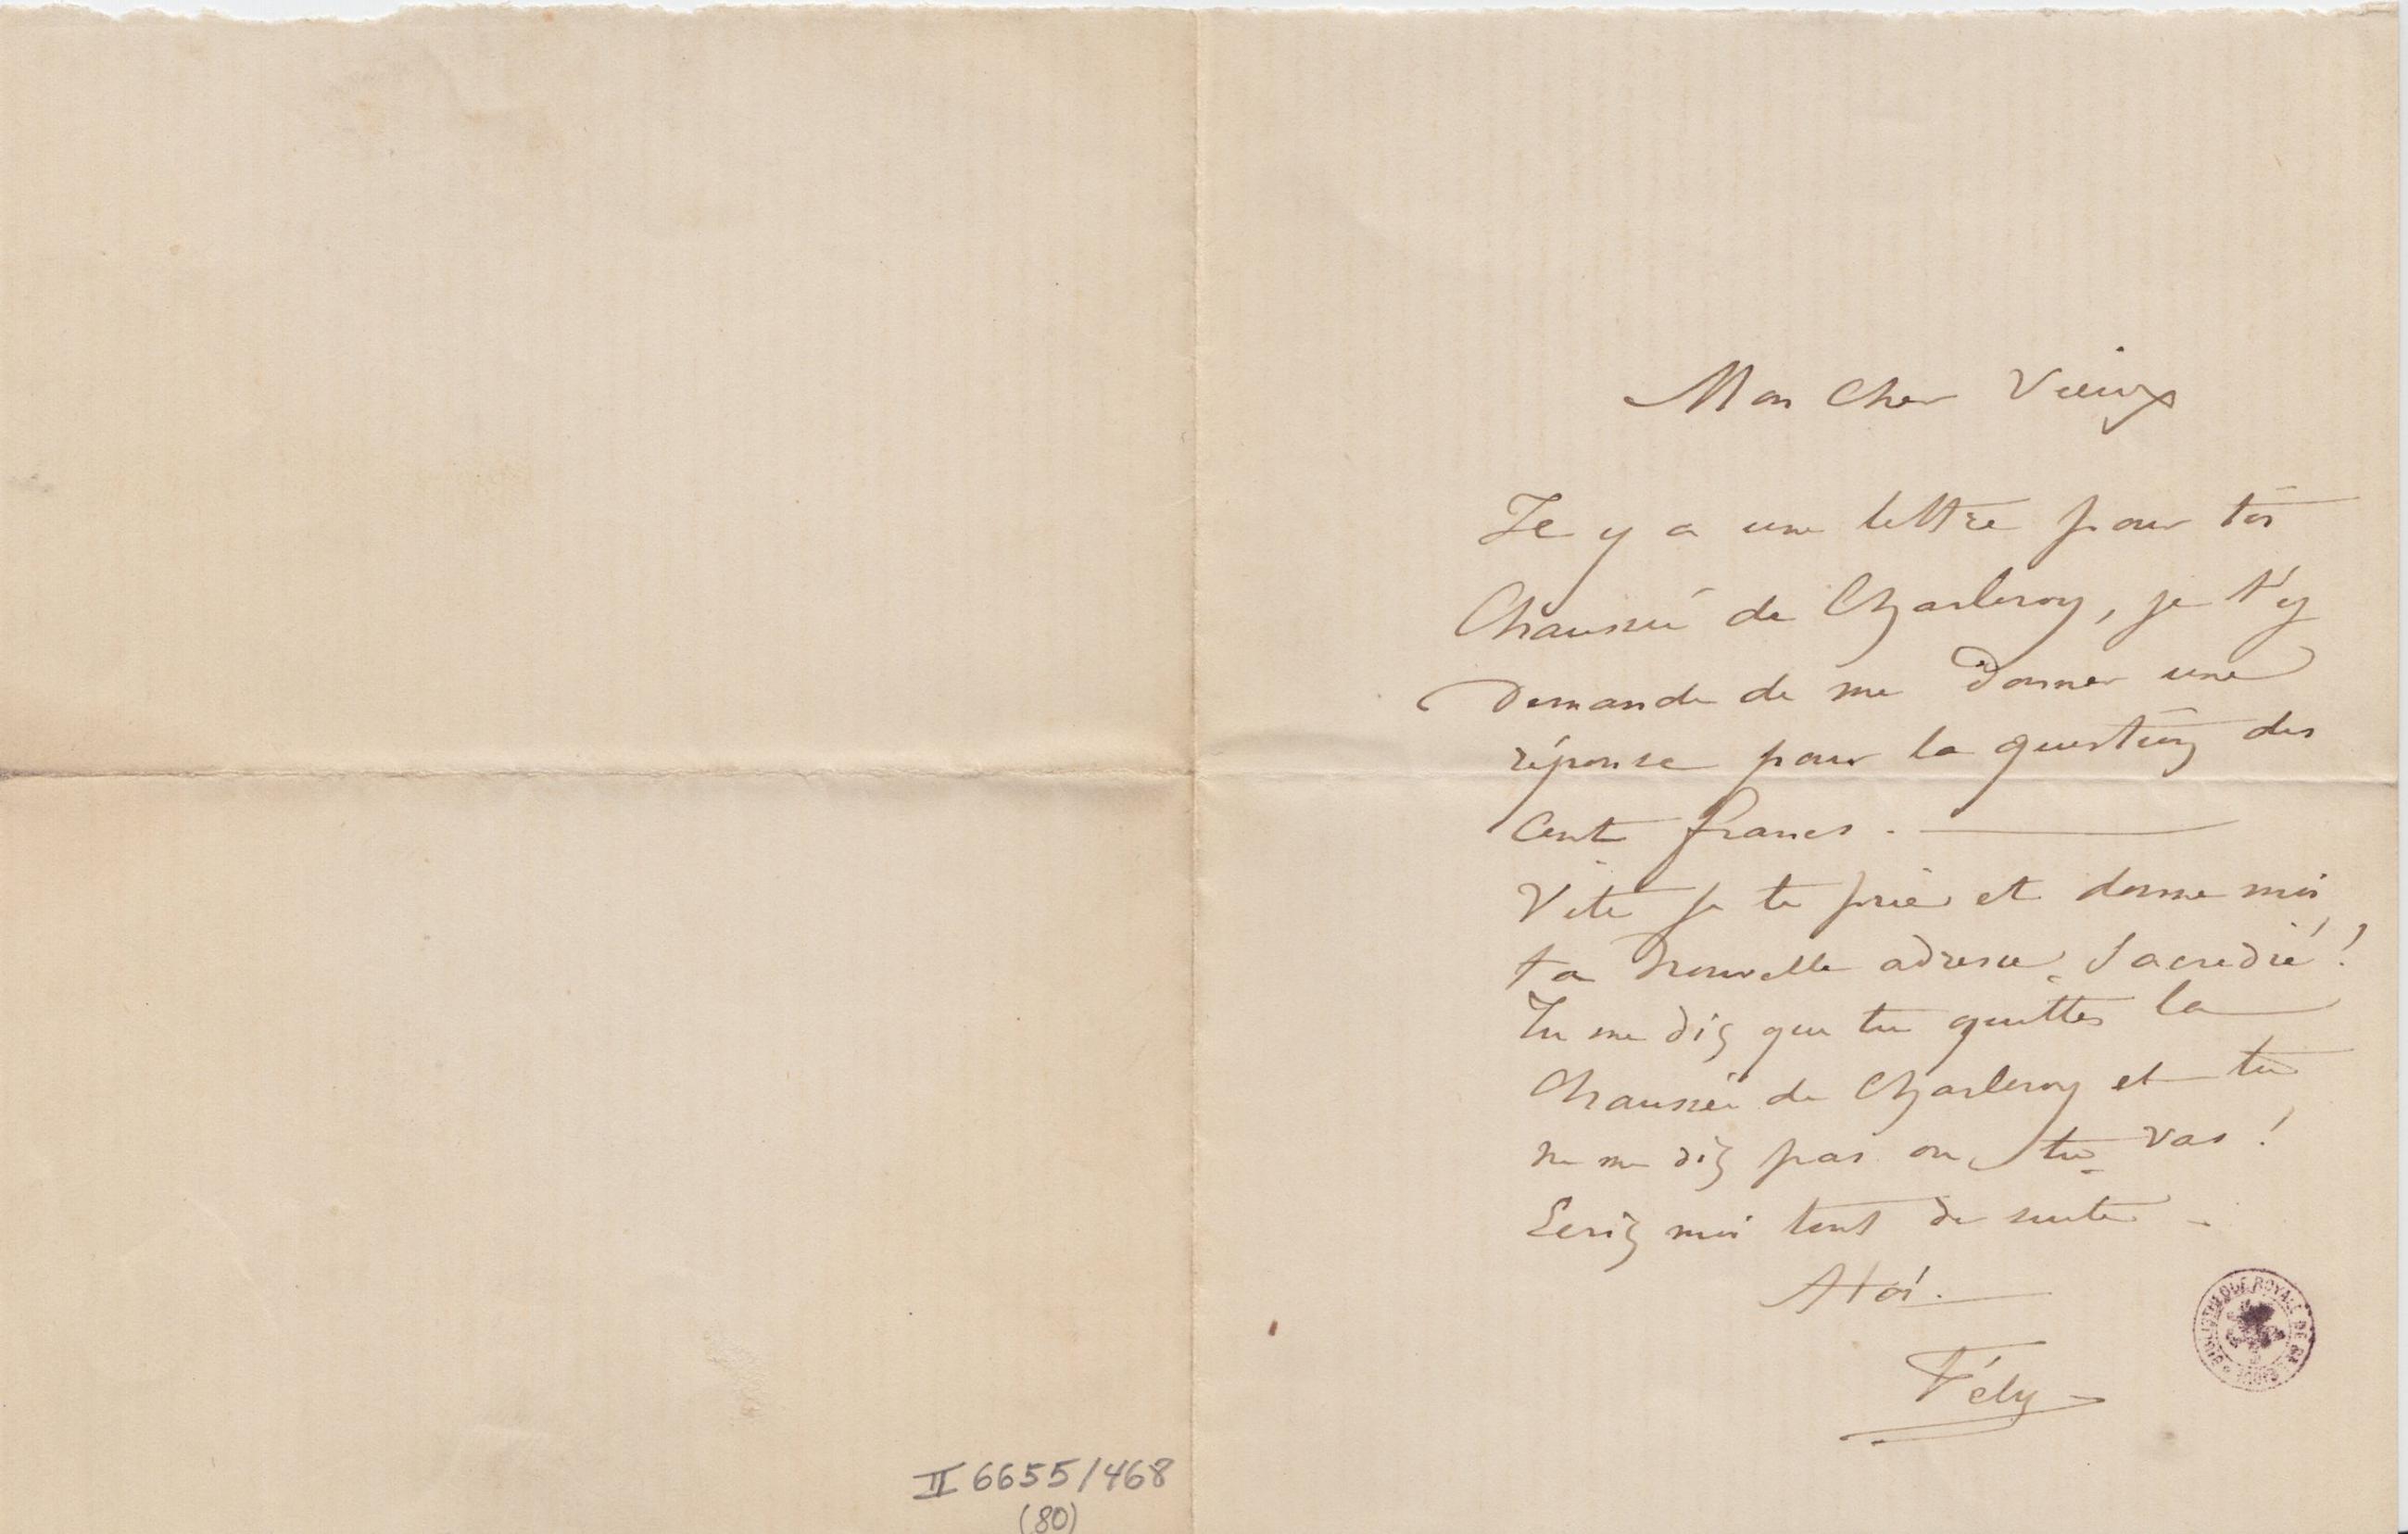 Mon Cher Vieux
Il y a une lettre pour toi
Chaussée de Charleroy, je t'y
demande de me donner une
réponse pour la question des
Cent francs. —
Vite je te prie et donne moi
ta nouvelle adresse, Sacredié !
Tu me dis que tu quittes la
Chaussée de Charleroy et tu
ne me dis pas ou tu vas !
Ecris moi tout de suite -
A toi. —
Fély
BIBLIOTHEQUE ROYALE DE BELGIQUE
II 6655/468
(80)